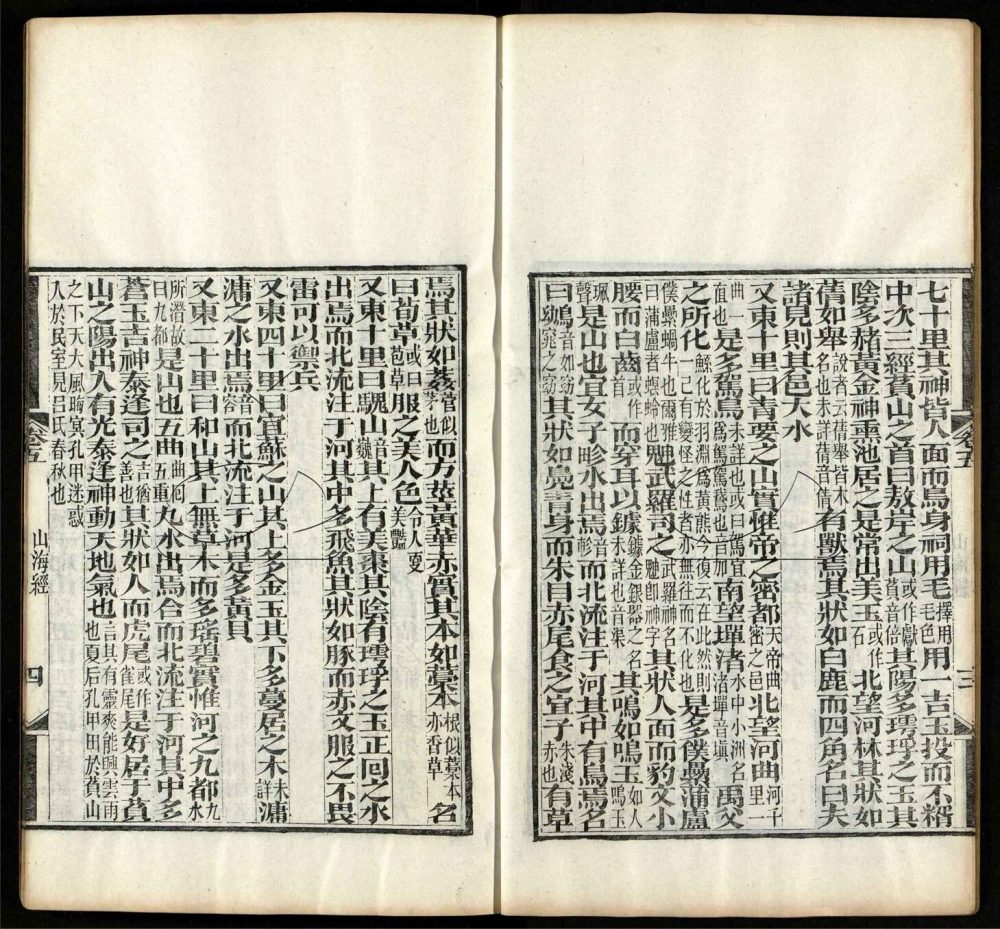 七十里其神皆人面而鳥身祠用毛擇用毛色用一吉玉投而不糈
中次三經萯山之首曰敖岸之山或作獻萯音倍其陽多㻬琈之玉其
陰多赭黃金神熏池居之是常出美玉或作石北望河林其狀如
蒨如舉說者云蒨舉皆木名也未詳蒨音倩有獸焉其狀如白鹿而四角名曰夫
諸見則其邑大水
又東十里曰青要之山實惟帝之密都天帝曲密之邑北望河曲河千里一
曲一直也是多駕鳥未詳也或曰駕宜為鴽鴽鶉也音加南望墠渚水中小洲名渚墠音填禹父
之所化鯀化於羽淵為黃熊今復云在此然則一已有變怪之性者亦無往而不化也是多僕纍蒲盧
僕纍蝸牛也爾雅曰蒲盧者螟蛉也䰠武羅司之武羅神名䰠即神字其狀人面而豹文小
腰而白齒或作首而穿耳以鐻鐻金銀器之名未詳也音渠其鳴如鳴玉如人鳴玉
珮聲是山也宜女子畛水出焉音軫而北流注于河其中有鳥焉名
曰鴢音如窈窕之窈其狀如鳧青身而朱目赤尾食之宜子朱淺赤也有草
卷五
山海經
三
焉其狀如葌菅似茅也而方莖黃華赤實其本如藁本根似藁本亦香草名
曰荀草或曰苞草服之美人色令人更美豔
又東十里曰騩山音巍其上有美棗其陰有㻬琈之玉正回之水
出焉而北流注于河其中多飛魚其狀如豚而赤文服之不畏
雷可以禦兵
又東四十里曰宜蘇之山其上多金玉其下多蔓居之木未詳滽
滽之水出焉音容而北流注于河是多黃貝
又東二十里曰和山其上無草木而多瑤碧實惟河之九都九水
所潛故曰九都是山也五曲曲回五重九水出焉合而北流注于河其中多
蒼玉吉神泰逢司之吉猶善也其狀如人而虎尾或作雀尾是好居于萯
山之陽出入有光泰逢神動天地氣也言其有靈爽能興雲雨也夏后孔甲田於萯山
之下天大風晦冥孔甲迷惑入於民室見呂氏春秋也
卷五
山海經
四